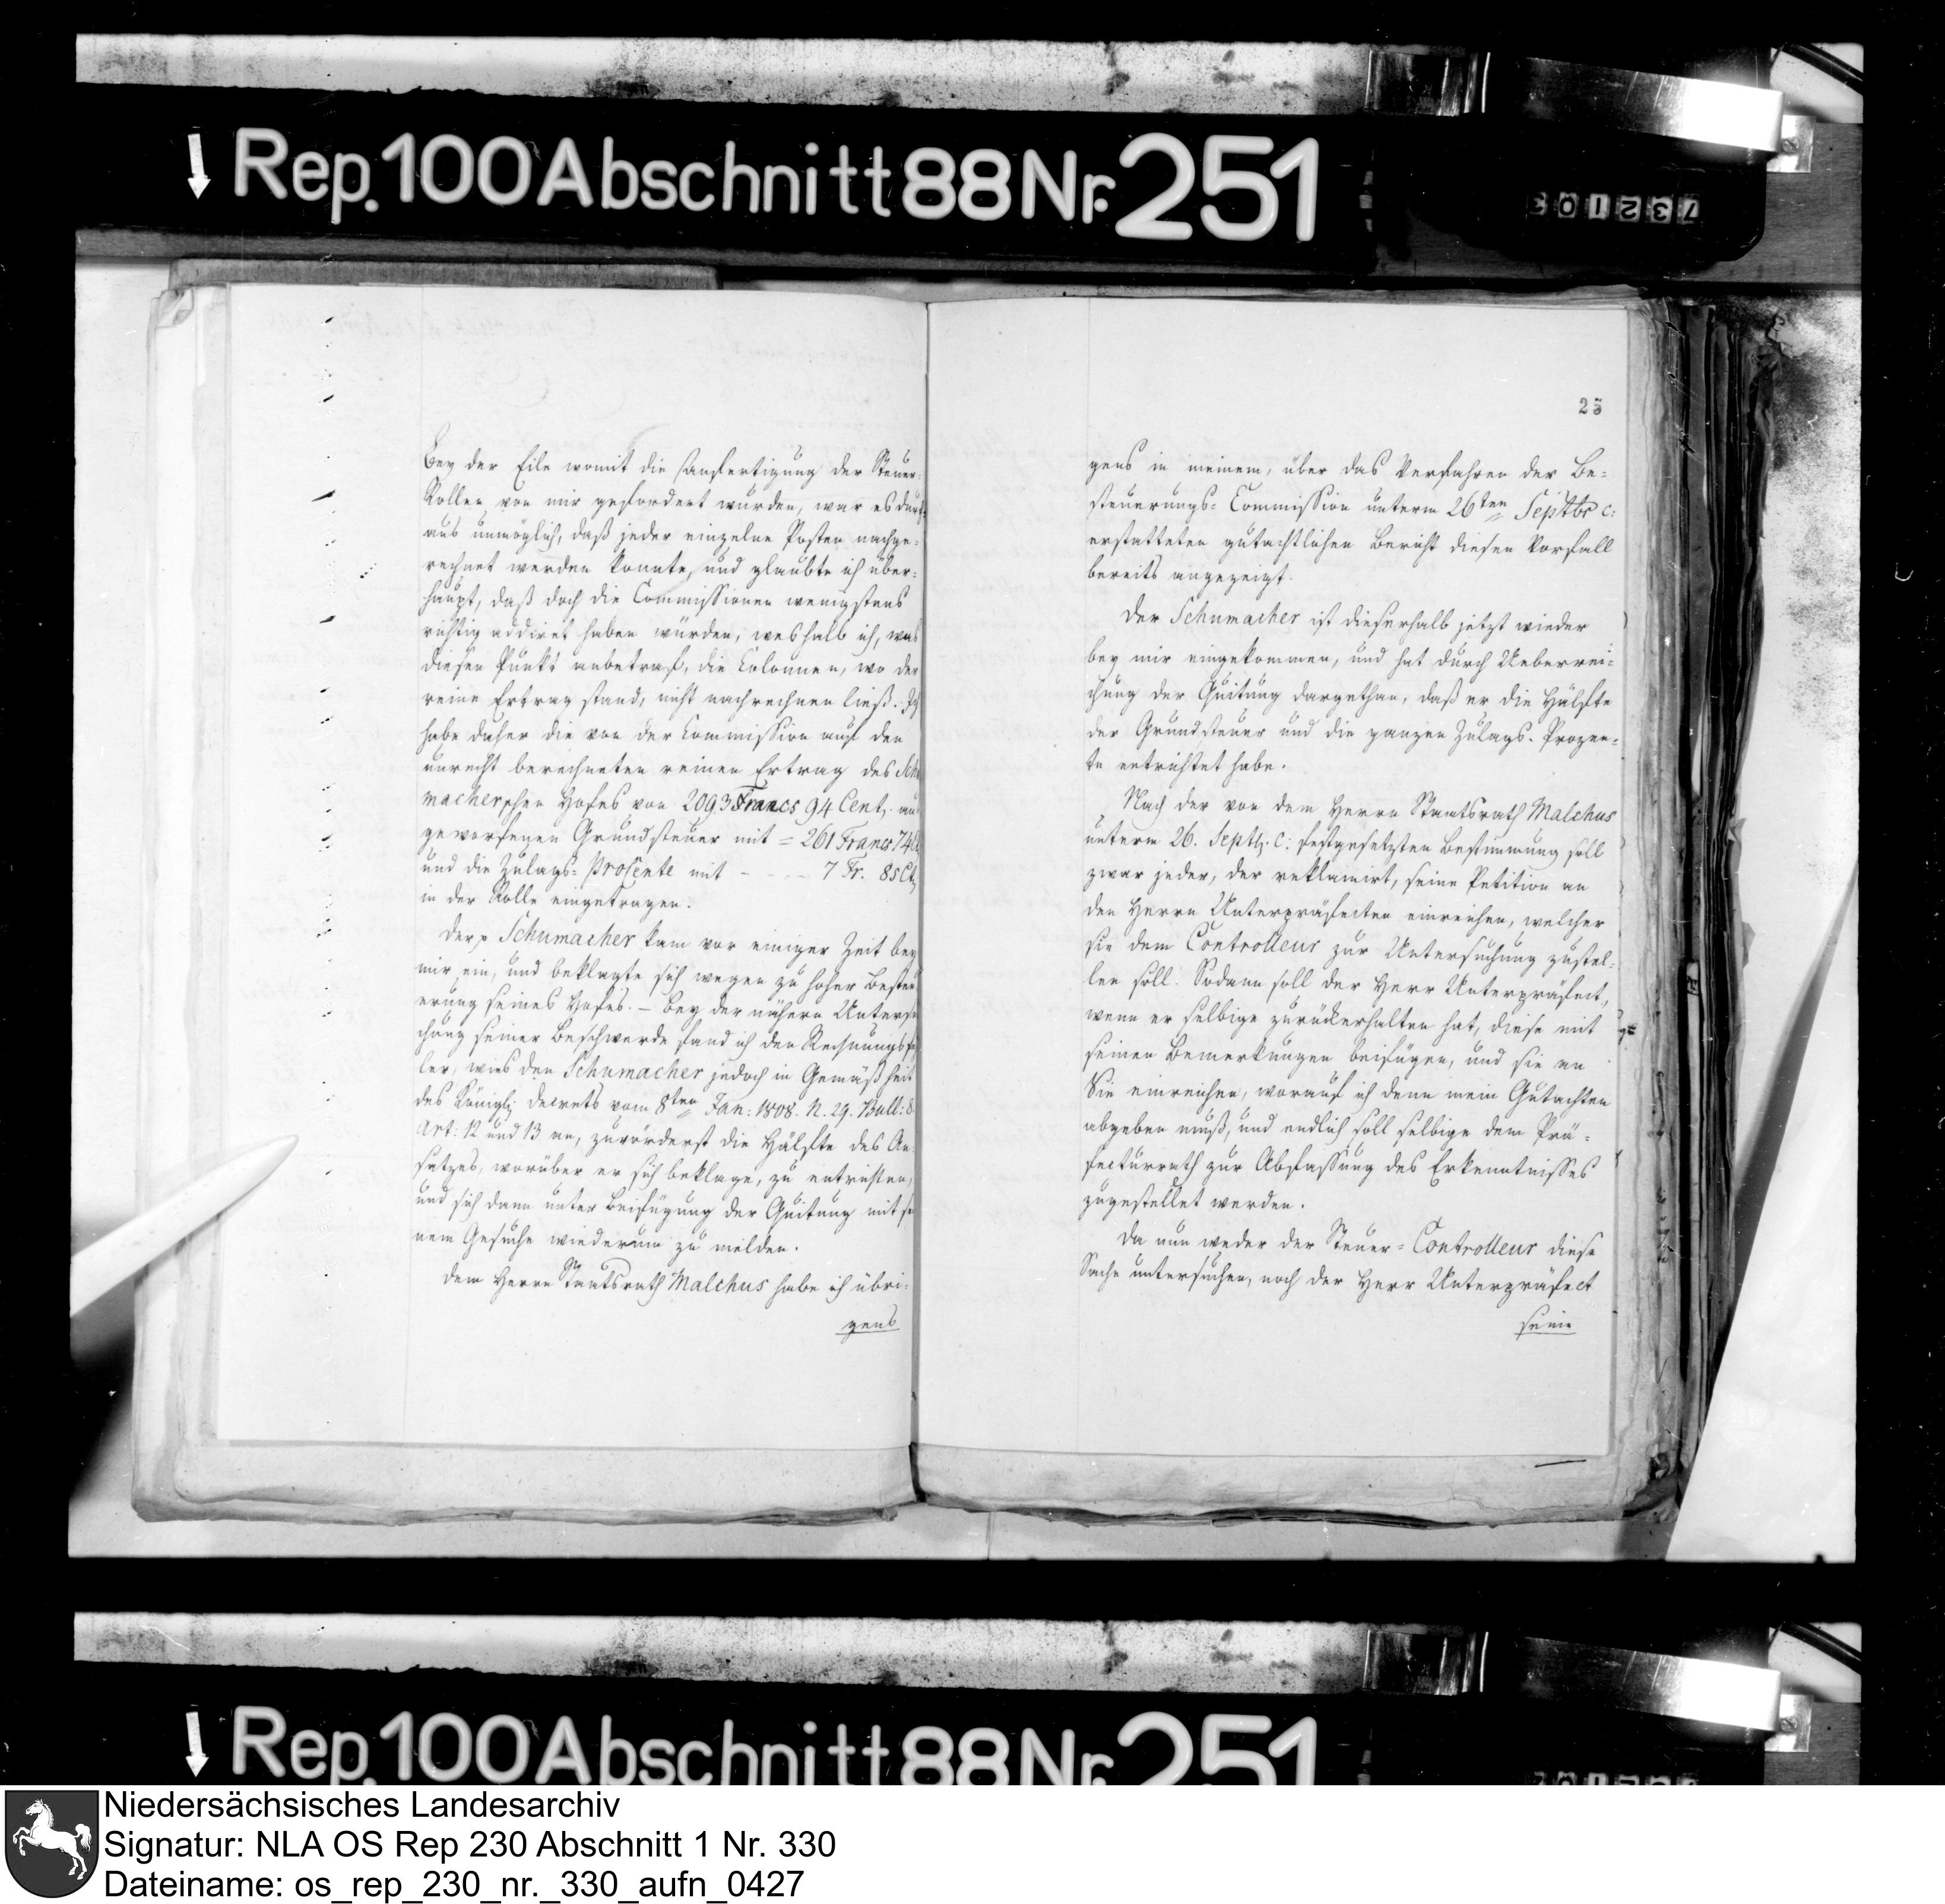 Rep. 100 Abschnitt 88 Nr. 251
732103
Bey der Eile womit die Ausfertigung der Steuer-
Rollen von mir gefordert wurden, war es durch-
aus unmöglich, daß jeder einzelne Posten nachge-
rechnet werden konnte, und glaubte ich über-
haupt, daß doch die Commissionen wenigstens
richtig addiret haben würden, weshalb ich, was
diesen Punkt anbetraf, die Colonnen, wo der
reine Ertrag stand, nicht nachrechnen ließ. Ich
habe daher die von der Commission auf den
unrecht berechneten reinen Ertrag des Schu
macherschen Hofes von 2093 Francs 94 Cent. aus
geworfenen Grundsteuer mit = 261 Francs 74 C
und die Zulags-Procente mit - - - - 7 Fr. 85 Ct
in der Rolle eingetragen.
Der p Schumacher kam vor einiger Zeit bey
mir ein, und beklagte sich wegen zu hoher Besteu
erung seines Hofes. – Bey der nähern Untersu
chung seiner Beschwerde fand ich den Rechnungsfeh
ler, wies den Schumacher jedoch in Gemäßheit
des Königl. Decrets vom 8ten Jan: 1808. N. 29. Bull: 8
Art: 12 und 13 an, zuvörderst die Hälfte des An
satzes, worüber er sich beklage, zu entrichten,
und sich dann unter Beifügung der Quitung mit sei
nem Gesuche wiederum zu melden.
Dem Herrn Staatsrath Malchus habe ich übri-
gens
25
gens in meinem, über das Verfahren der Be-
steuerungs-Commission unterm 26ten Septbr c:
erstatteten gutachtlichen Bericht diesen Vorfall
bereits angezeigt.
Der Schumacher ist dieserhalb jetzt wieder
bey mir eingekommen, und hat durch Ueberrei-
chung der Quitung dargethan, daß er die Hälfte
der Grundsteuer und die ganzen Zulags-Prozen-
te entrichtet habe.
Nach der von dem Herrn Staatsrath Malchus
unterm 26. Septb. c: festgesetzten Bestimmung soll
zwar jeder, der reklamirt, seine Petition an
den Herrn Unterpräfecten einreichen, welcher
sie dem Controlleur zur Untersuchung zustel-
len soll. Sodann soll der Herr Unterpräfect,
wenn er selbige zurückerhalten hat, diese mit
seinen Bemerkungen beifügen, und sie an
Sie einreichen, worauf ich denn mein Gutachten
abgeben muß, und endlich soll selbige dem Prä-
fecturrath zur Abfassung des Erkenntnisses
zugestellet werden.
Da nun weder der Steuer-Controlleur diese
Sache untersuchen, noch der Herr Unterpräfect
seine
Rep. 100 Abschnitt 88 Nr. 251
Niedersächsisches Landesarchiv
Signatur: NLA OS Rep 230 Abschnitt 1 Nr. 330
Dateiname: os_rep_230_nr._330_aufn_0427